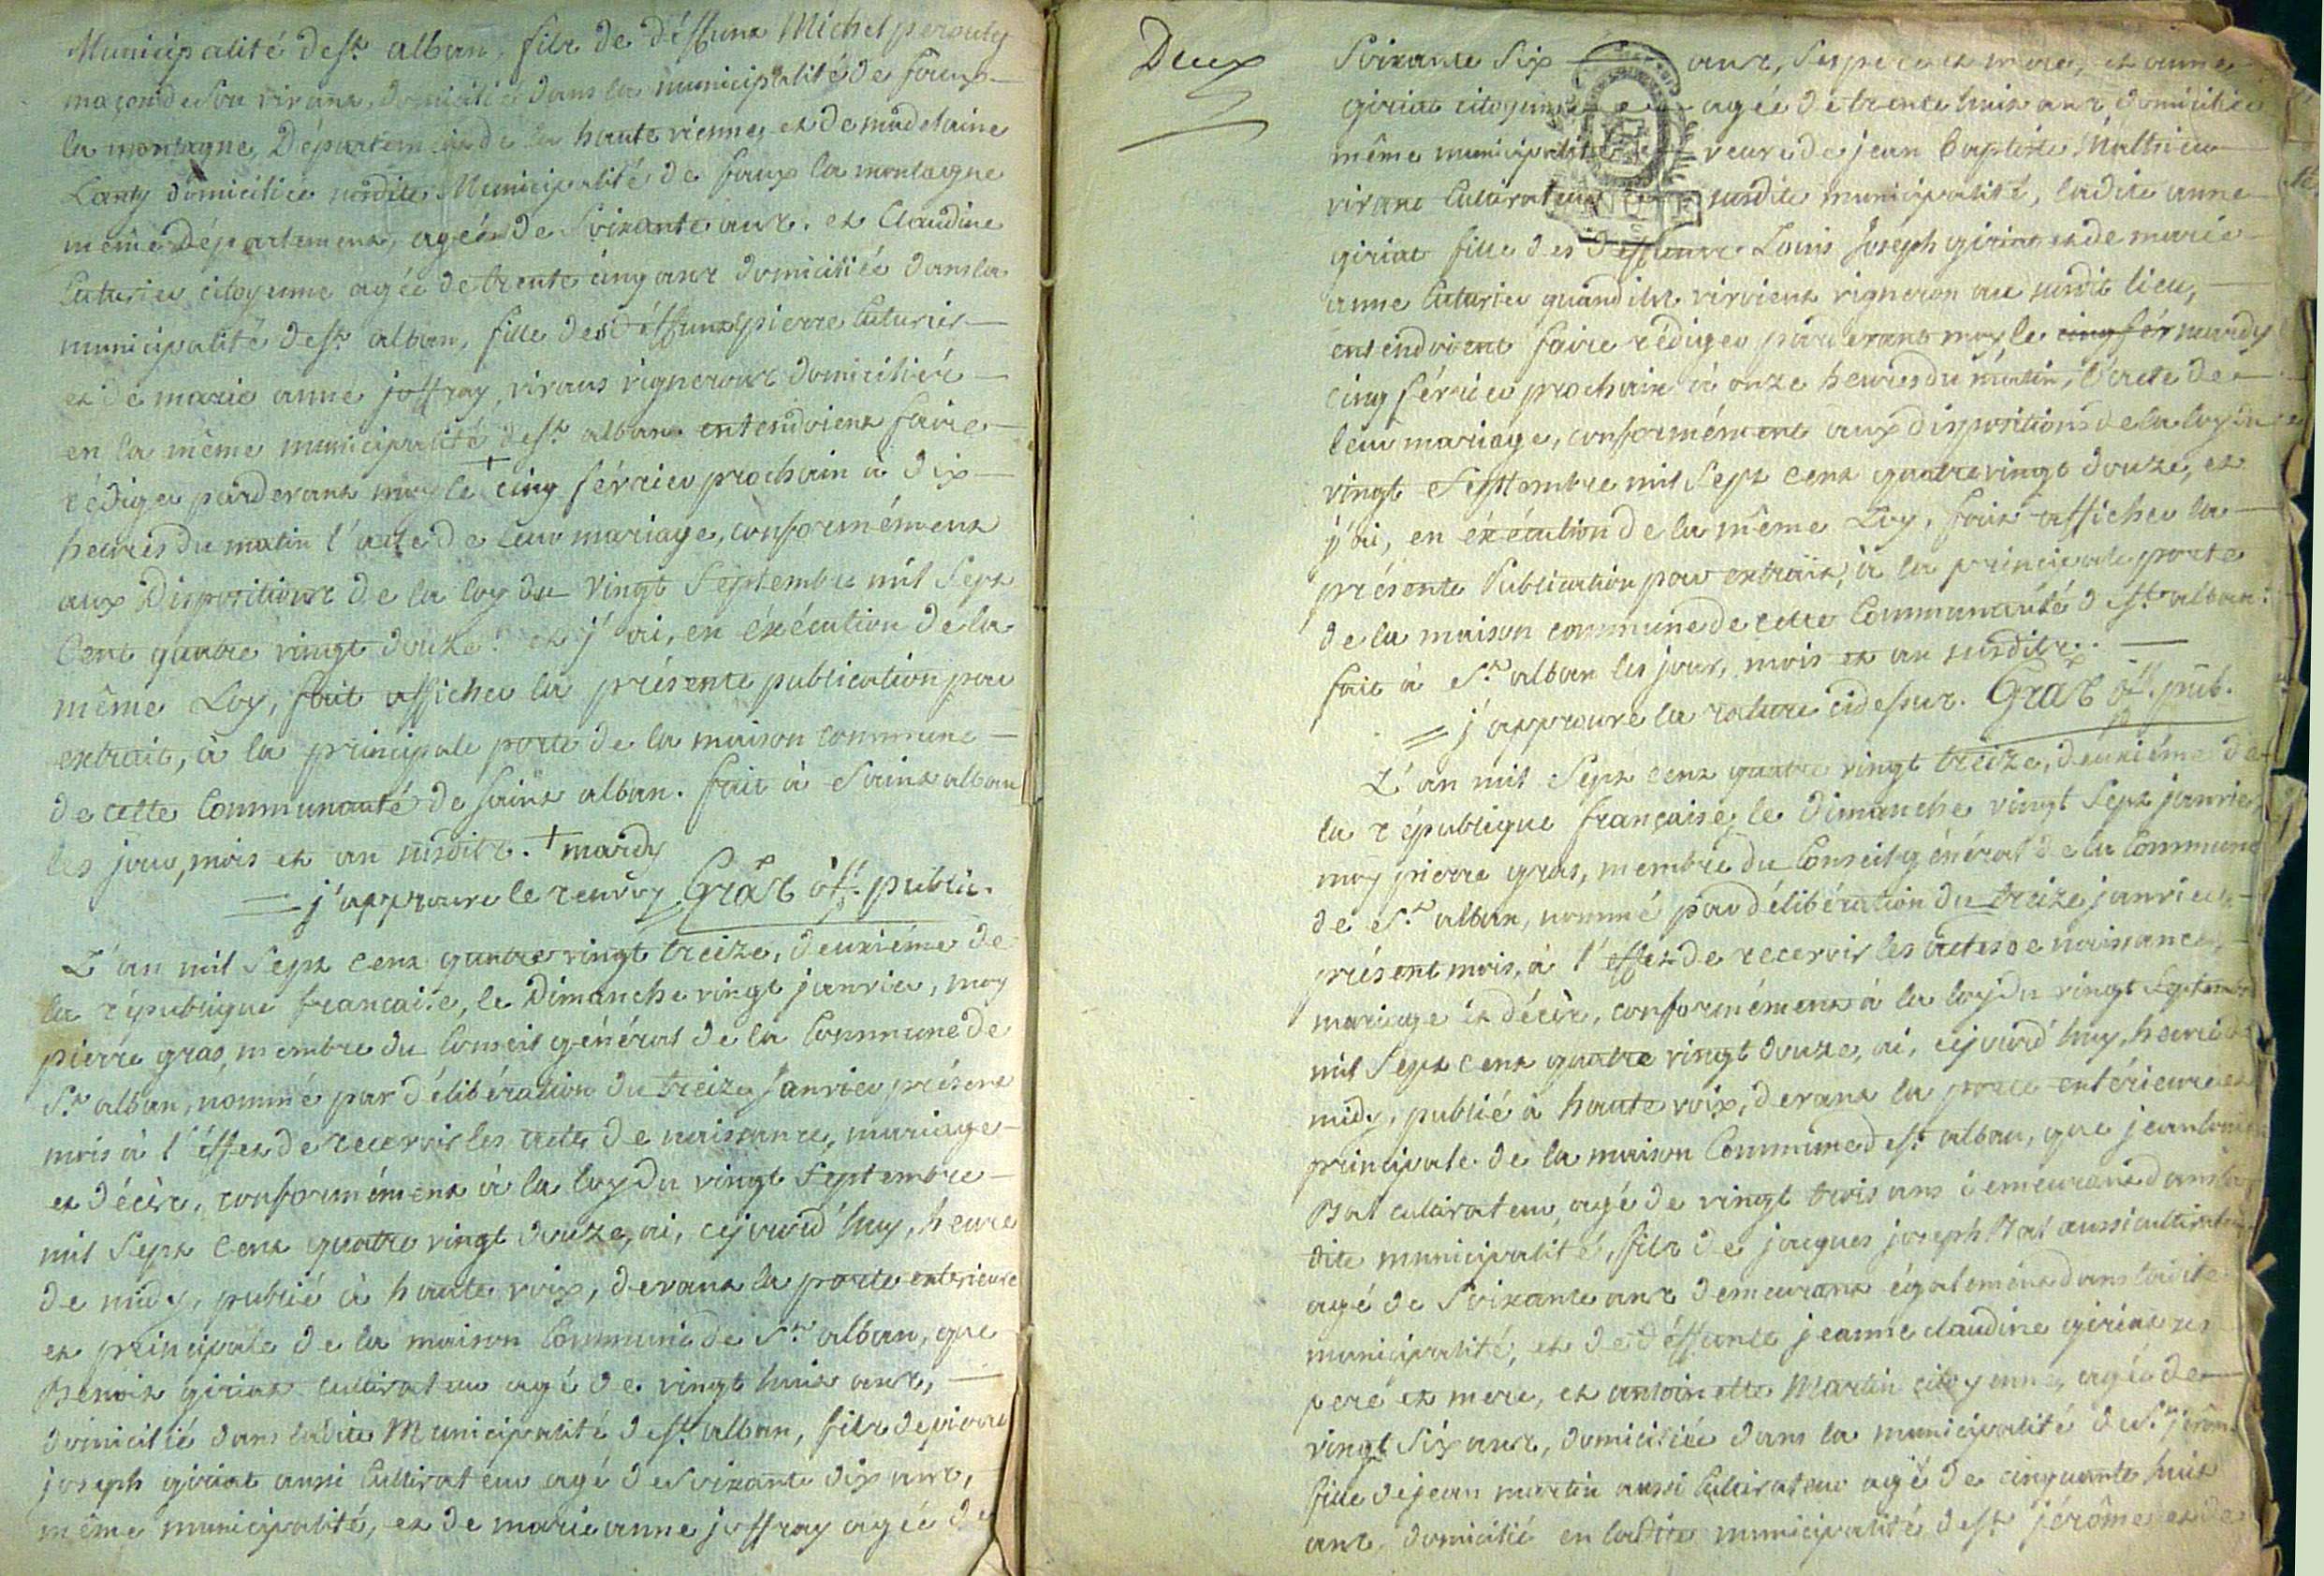 Municipalité de st. alban, fils de déffunt Michel peronty
maçon de son vivant, domicilié dans la municipalité de faux
la montagne, Département de la haute vienne, et de madelaine
Lanty domiciliée susdite Municipalité de faux la montagne
même Département, agée de Soixante ans. et Claudine
Cuturier citoyenne agée de trente cinq ans domiciliée dans la
municipalité de st. alban, fille des déffunts pierre Cuturier
et de marie anne joffray, vivans vignerons domiciliés
en la même municipalité de st. alban. entendoient faire
rédiger pardevant moy le + cinq février prochain à dix
heures du matin l'acte de leur mariage, conformément
aux Dispositions de la loy du vingt Septembre mil Sept
Cent quatre vingt douze. et j'ai, en éxécution de la
même Loy, fait afficher la présente publication par
extrait, à la principale porte de la maison commune
de cette Communauté de saint alban. fait à Saint alban
les jour, mois et an susdits. + mardy
= j'approuve le renvoy Gras off. public.
L'an mil Sept cent quatre vingt treize, deuxiéme de
la république francaise, le Dimanche vingt janvier, moy
pierre gras, membre du Conseil général de la Commune de
St. alban, nommé par délibération du treize Janvier présent
mois à l'éffet de recevoir les acte de naissance, mariage
et décès, conformément à la loy du vingt Séptembre
mil Sept Cent quatre vingt douze, ai, cejourd'huy, heure
de midy, publié à haute voix, devant la porte exterieure
et principale de la maison Commune de St. alban, que
Benoit giriat cultivateur agé de vingt huit ans,
domicilié dans ladite Municipalité de st. alban, fils de pierre
joseph giriat aussi Cultivateur agé de Soixante dix ans,
même municipalité, et de marie anne joffray agée de
Deux
Soixante Six ans, Ses pere et mere, et anne
giriat citoyenne agée de trente huit ans domiciliée
même municipalité veuve de jean baptiste Mathieu
vivant Cultivateur susdite municipalité, ladite anne
giriat fille des deffunts Louis Joseph giriat et de marie
anne Cuturier quand ils vivoient vigneron au susdit lieu,
entendoient faire rédiger pardevant moy le cinq fév mardy
cinq février prochain à onze heures du matin, l'acte de
leur mariage, conformément aux dispositions de la loy du
vingt Septtembre mil Sept cent quatre vingt douze, et
j'ai, en éxécution de la même Loy, fait afficher la
présente Publication par extrait, à la principale porte
de la maison commune de cette Communauté de st. alban.
fait à St. alban les jour, mois et an susdits.
= j'approuve la rature cidessus. Gras off. pub.
L'an mil Sept cent quatre vingt treize, deuxiéme de
la république française, le dimanche vingt Sept janvier,
moy pierre gras, membre du Conseil général de la Commune
de St. alban, nommé par délibération du treize janvier,
présent mois, à l'effet de recevoir les actes de naissance,
mariage et décès, conformément à la loy du vingt Septembre
mil Sept cent quatre vingt douze, ai, cejourd'huy, heure de
midy, publié à haute voix, devant la porte extérieure et
principale de la maison Commune de st. alban, que jean louis
Bal cultivateur, agé de vingt trois ans demeurant dans la
dite municipalité, fils de jacques joseph Bal aussi cultivateur
agé de Soixante ans demeurant également dans ladite
municipalité, et de déffunte jeanne claudine giriat ses
pere et mere, et antoinette Martin citoyenne, agée de
vingt Six ans, domiciliée dans la municipalité de St. jérôme
fille de jean martin aussi Cultivateur agé de cinquante huit
ans, domicilié en ladite municipalité de st. jérôme et de